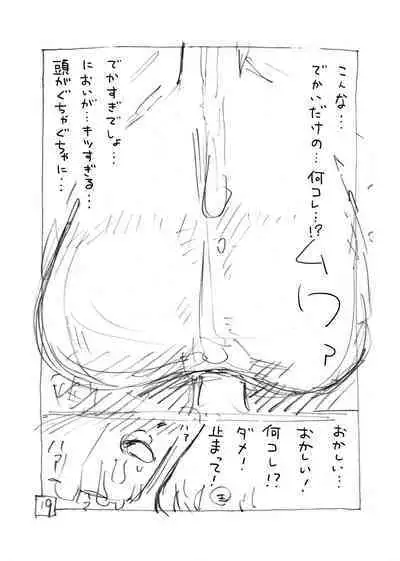 こんな…
でかいだけの…何コレ…!?
ムワ
でかすぎでしょ…
においが…キツすぎる…
頭がぐちゃぐちゃに…
おかしい…
おかしい!
何コレ!?
ダメ!
止まって!
19